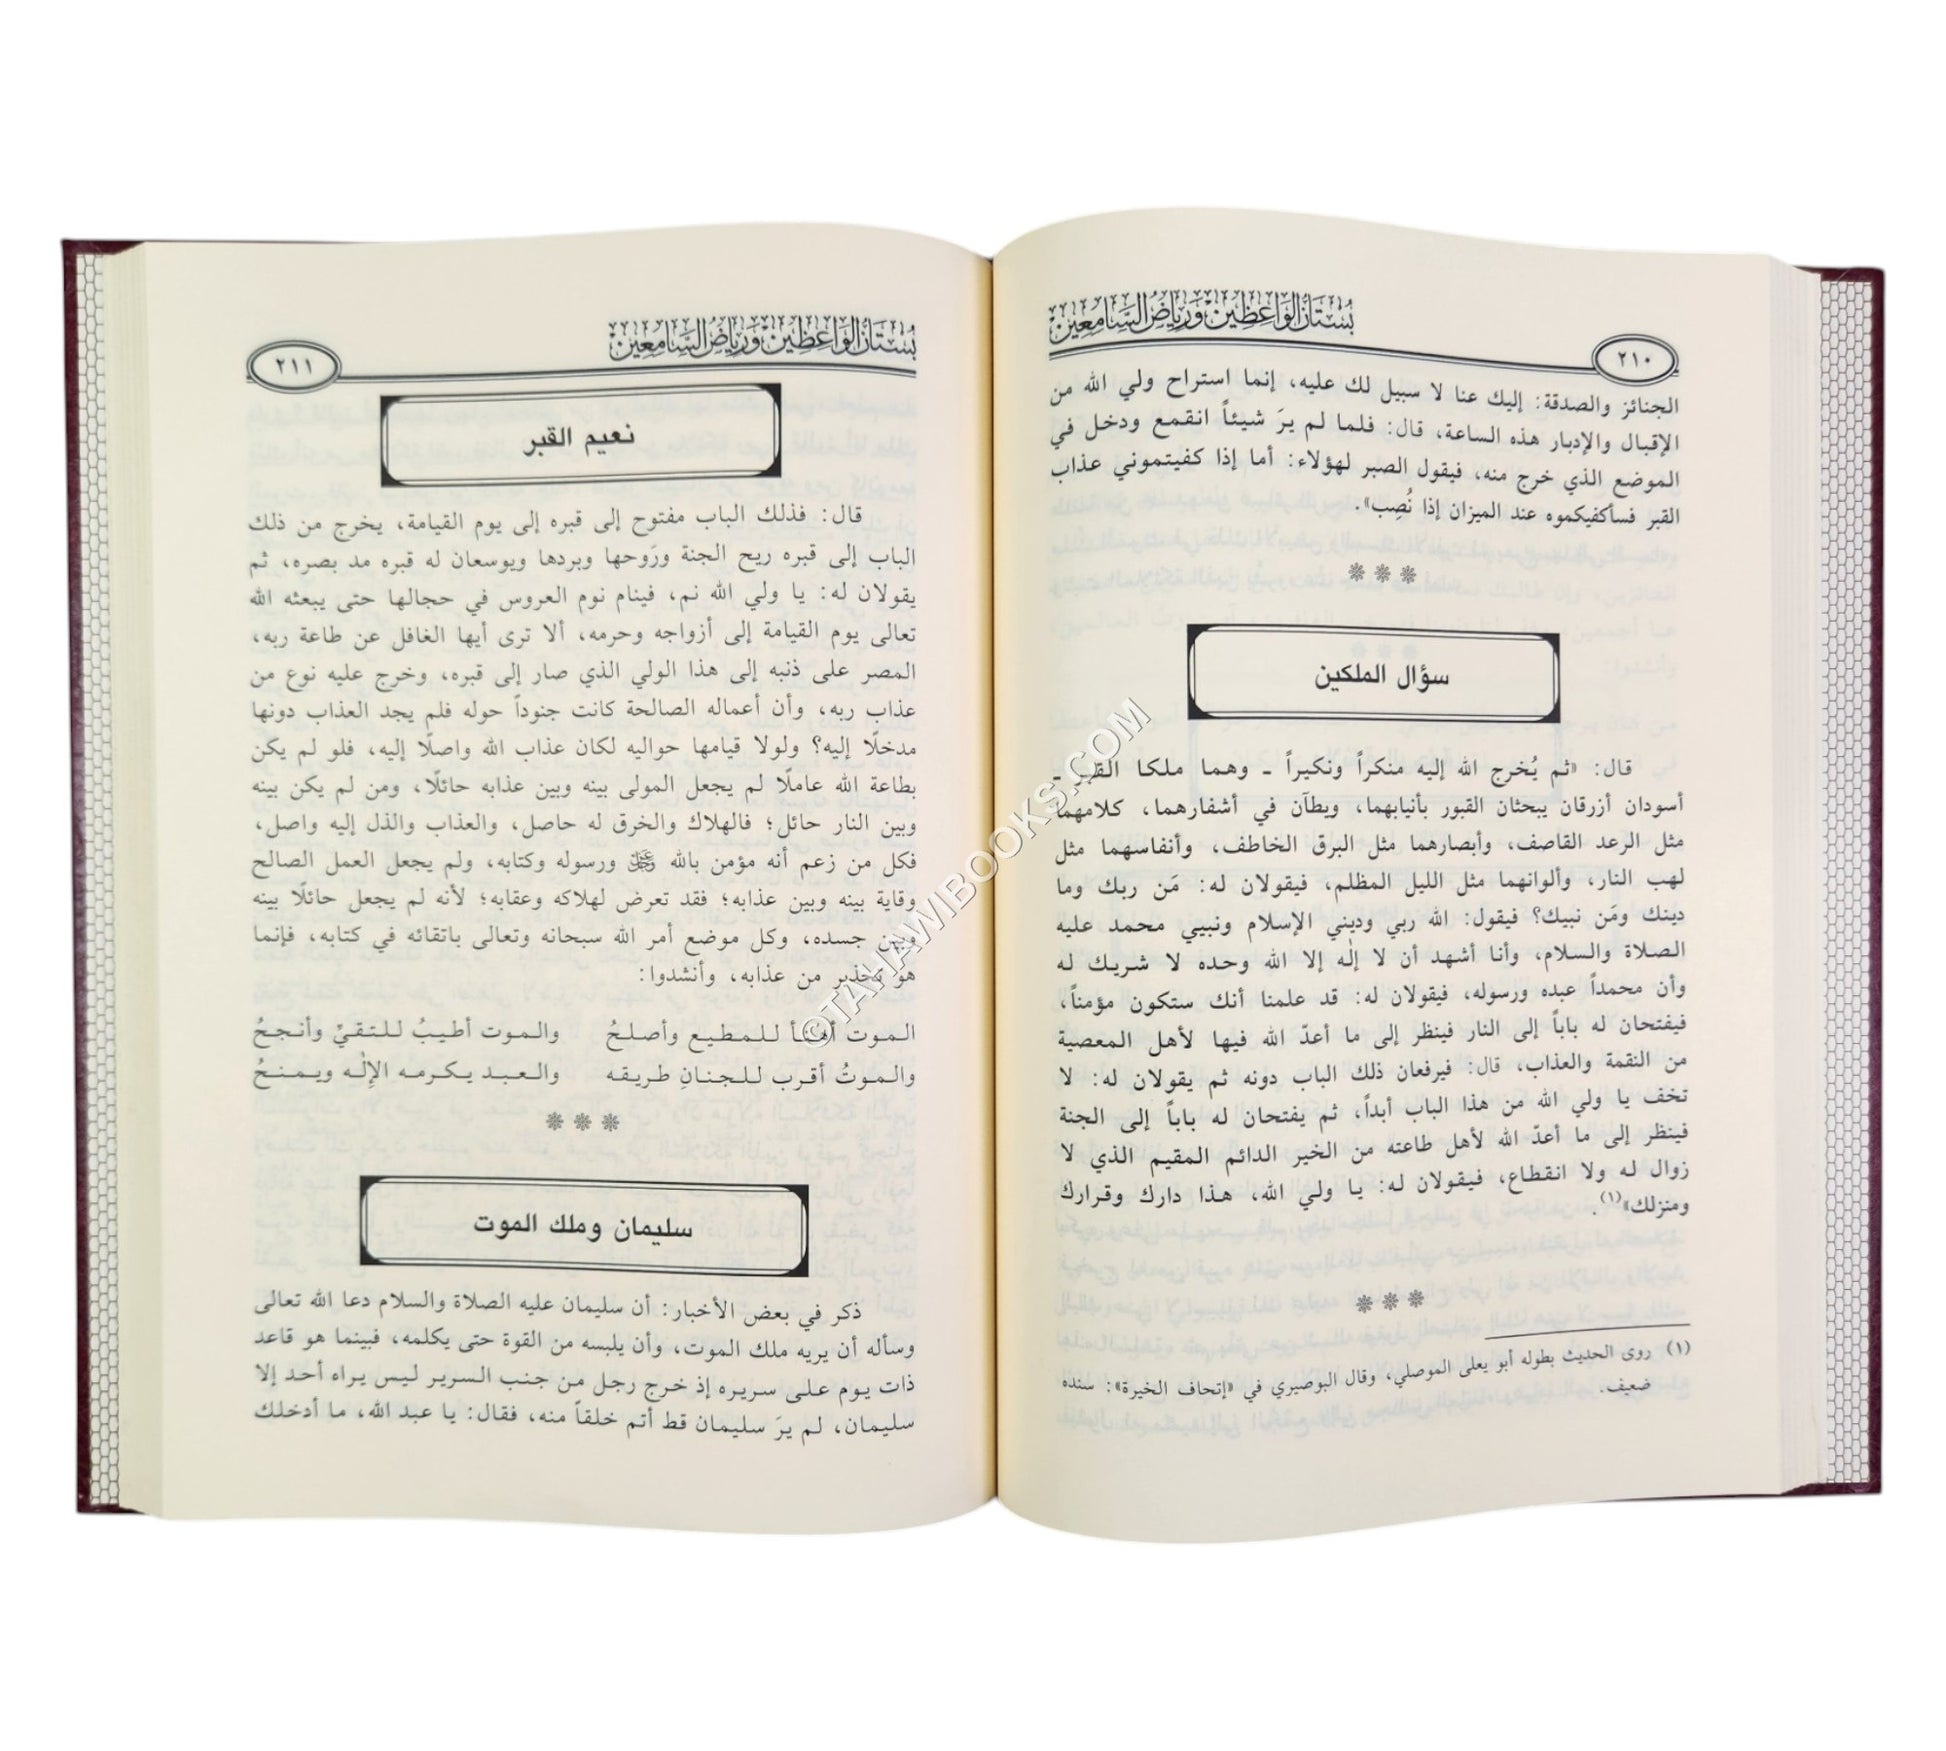 بستان الواعظين ورياض السامعين
٢١٠
الجنائز والصدقة: إليك عنا لا سبيل لك عليه، إنما استراح ولي الله من
الإقبال والإدبار هذه الساعة، قال: فلما لم يرَ شيئاً انقمع ودخل في
الموضع الذي خرج منه، فيقول الصبر لهؤلاء: أما إذا كفيتموني عذاب
القبر فسأكفيكموه عند الميزان إذا نُصِب».
سؤال الملكين
قال: «ثم يُخرج الله إليه منكراً ونكيراً ـ وهما ملكا القبر ـ
أسودان أزرقان يبحثان القبور بأنيابهما، ويطآن في أشفارهما، كلامهما
مثل الرعد القاصف، وأبصارهما مثل البرق الخاطف، وأنفاسهما مثل
لهب النار، وألوانهما مثل الليل المظلم، فيقولان له: مَن ربك وما
دينك ومَن نبيك؟ فيقول: الله ربي وديني الإسلام ونبيي محمد عليه
الصلاة والسلام، وأنا أشهد أن لا إلٰه إلا الله وحده لا شريك له
وأن محمداً عبده ورسوله، فيقولان له: قد علمنا أنك ستكون مؤمناً،
فيفتحان له باباً إلى النار فينظر إلى ما أعدّ الله فيها لأهل المعصية
من النقمة والعذاب، قال: فيرفعان ذلك الباب دونه ثم يقولان له: لا
تخف يا ولي الله من هذا الباب أبداً، ثم يفتحان له باباً إلى الجنة
فينظر إلى ما أعدّ الله لأهل طاعته من الخير الدائم المقيم الذي لا
زوال له ولا انقطاع، فيقولان له: يا ولي الله، هذا دارك وقرارك
ومنزلك»(١).
(١) روى الحديث بطوله أبو يعلى الموصلي، وقال البوصيري في «إتحاف الخيرة»: سنده
ضعيف.
بستان الواعظين ورياض السامعين
٢١١
نعيم القبر
قال: فذلك الباب مفتوح إلى قبره إلى يوم القيامة، يخرج من ذلك
الباب إلى قبره ريح الجنة ورَوحها وبردها ويوسعان له قبره مد بصره، ثم
يقولان له: يا ولي الله نم، فينام نوم العروس في حجالها حتى يبعثه الله
تعالى يوم القيامة إلى أزواجه وحرمه، ألا ترى أيها الغافل عن طاعة ربه،
المصر على ذنبه إلى هذا الولي الذي صار إلى قبره، وخرج عليه نوع من
عذاب ربه، وأن أعماله الصالحة كانت جنوداً حوله فلم يجد العذاب دونها
مدخلًا إليه؟ ولولا قيامها حواليه لكان عذاب الله واصلًا إليه، فلو لم يكن
بطاعة الله عاملًا لم يجعل المولى بينه وبين عذابه حائلًا، ومن لم يكن بينه
وبين النار حائل؛ فالهلاك والخرق له حاصل، والعذاب والذل إليه واصل،
فكل من زعم أنه مؤمن بالله ورسوله وكتابه، ولم يجعل العمل الصالح
وقاية بينه وبين عذابه؛ فقد تعرض لهلاكه وعقابه؛ لأنه لم يجعل حائلًا بينه
وبين جسده، وكل موضع أمر الله سبحانه وتعالى باتقائه في كتابه، فإنما
هو تحذير من عذابه، وأنشدوا:
الموت أهنأ للمطيع وأصلحُ والموت أطيبُ للتقيِّ وأنجحُ
والموتُ أقرب للجنانِ طريقه والعبد يكرمه الإلٰه ويمنحُ
سليمان وملك الموت
ذكر في بعض الأخبار: أن سليمان عليه الصلاة والسلام دعا الله تعالى
وسأله أن يريه ملك الموت، وأن يلبسه من القوة حتى يكلمه، فبينما هو قاعد
ذات يوم على سريره إذ خرج رجل من جنب السرير ليس يراه أحد إلا
سليمان، لم يرَ سليمان قط أتم خلقاً منه، فقال: يا عبد الله، ما أدخلك
©TAHAWIBOOKS.COM